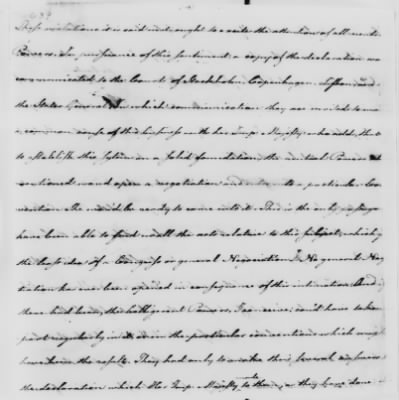 These violations it is said
Powers. In pursuance of this sentiment a copy of the declaration was
communicated to the Courts of Stockholm, Copenhagen, Lisbon, and
the States General, in which communication they are invited to make
a common cause of this business with her Imp: Majesty: who adds, that
to establish this system on a solid foundation, the neutral Powers
mentioned would open a negotiation and enter into a particular Con-
vention. She would be ready to come into it. This is the only passage
have been able to find in all the acts relative to this subject, which
the least idea of a Congress or general Negociation. No general Nego-
tiation has ever been opened in consequence of this intimation. And
there had been, the belligerent Powers, I conceive, could have taken
part regularly in it, or in the particular conventions which might
have been the result. They had only to make their several answers
the declaration which Her Imp: Majesty to them, as they have done